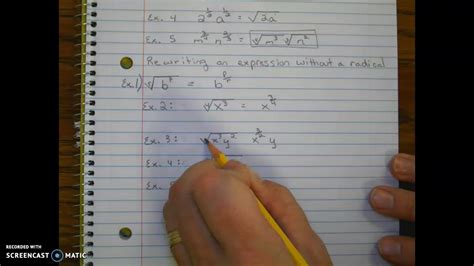 Ex. 4 2^{1/2} a^{1/2} = √2a
Ex. 5 =
Rewriting an expression without a radical
Ex. 1) =
Ex. 2: ∜x³ = x^{3/4}
Ex. 3: √x³y² x^{3/2} y
Ex. 4:
Ex.
RECORDED WITH
SCREENCAST MATIC